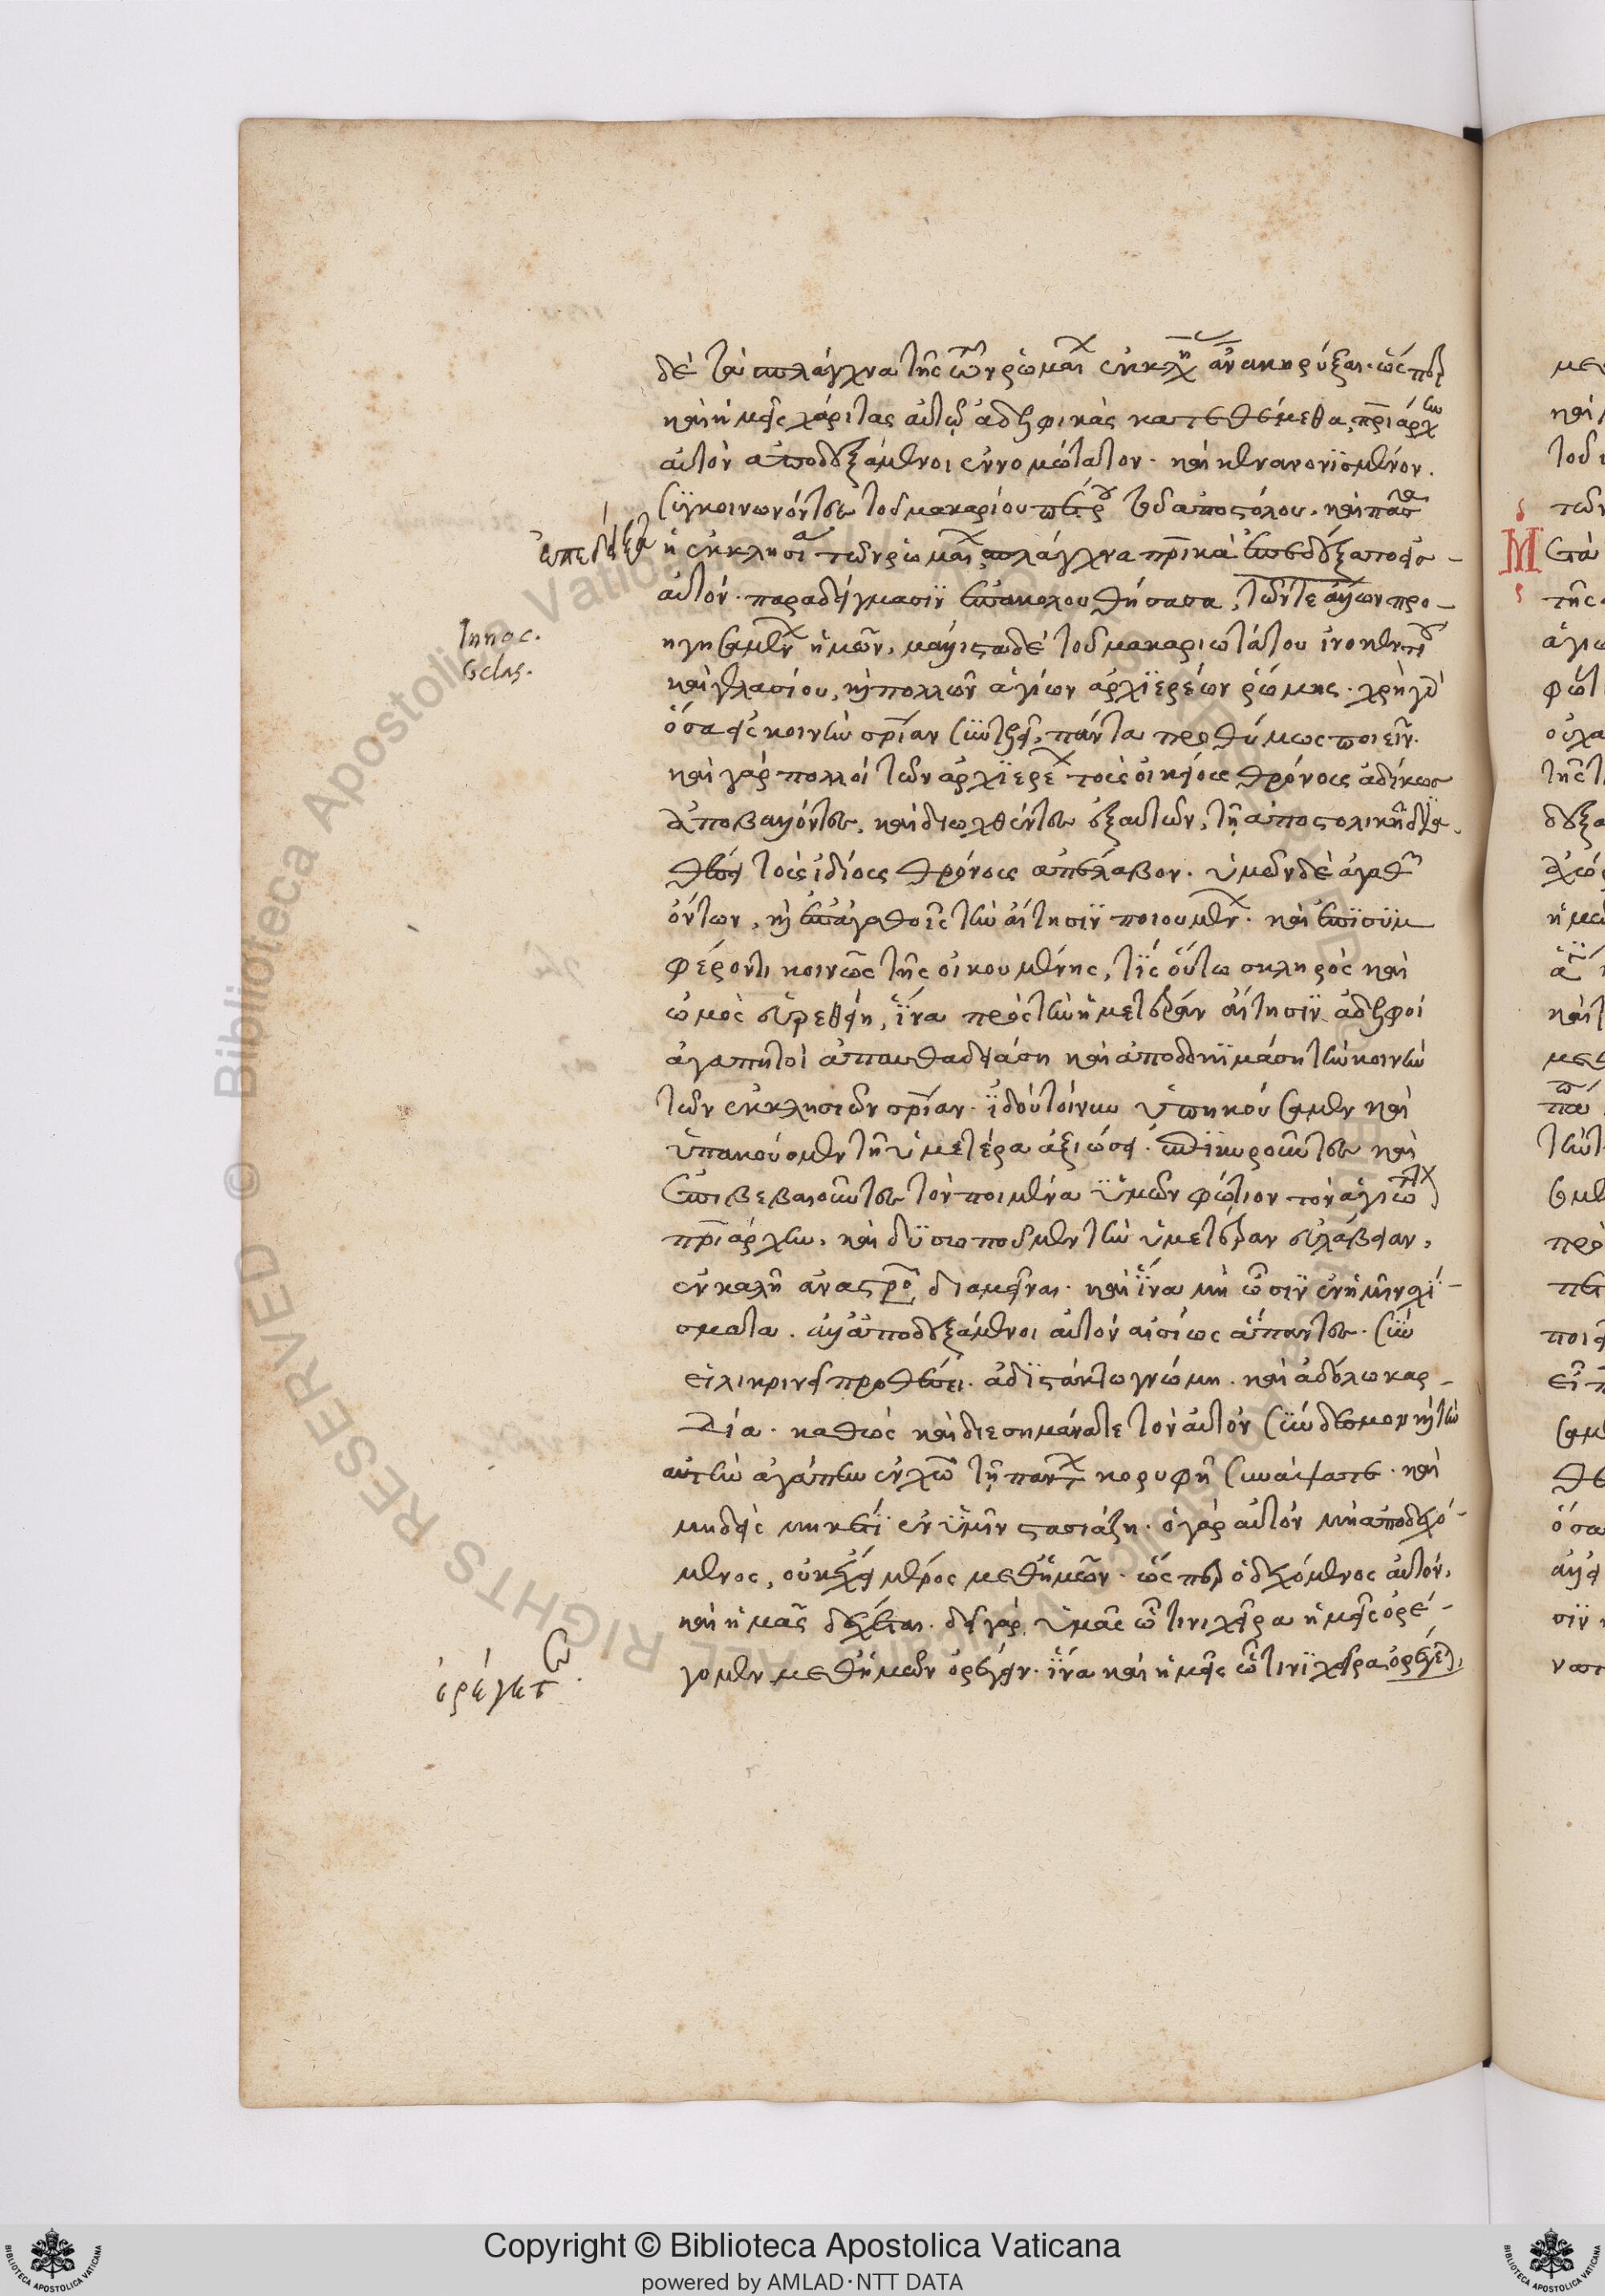 δὲ τὰ σπλάγχνα τῆς τῶν ῥωμαί ἐκκλη ἀνακηρύξαι. ὥσπερ
καὶ ἡμεῖς χάριτας αὐτῷ ἀδελφικὰς κατεθέμεθα, πριάρχ
αὐτὸν ἀποδεξάμενοι ἐννομώτατον. καὶ κενανονισμένον.
συγκοινωνόντες τοῦ μακαρίου πέτρου τοῦ ἀποστόλου. καὶ πᾶσα
ἡ ἐκκλησία τῶν ῥωμαί σπλάγχνα πρικὰ
αὐτόν. παραδείγμασιν ἐπακολουθήσασα, τῶν τε ἁγίων προ-
ηγησαμένων ἡμῶν, μάλιστα δὲ τοῦ μακαριωτάτου ἰνοκεντίου
καὶ γελασίου, καὶ πολλῶν ἁγίων ἀρχιερέων ῥώμης. χρὴ γὰρ
ὅσα εἰς κοινὴν σρίαν συντελεῖ, πάντα προθύμως ποιεῖν.
καὶ γὰρ πολλοὶ τῶν ἀρχιερέων τοῖς οἰκείοις θρόνοις ἀδίκως
ἀποβαλόντες, καὶ διωχθέντες ἐξ αὐτῶν, τῇ ἀποστολικῇ δια
θέσει τοῖς ἰδίοις θρόνοις ἀπέλαβον. ὑμῶν δὲ ἀγαθῶν
ὄντων, καὶ ἐπ' ἀγαθοῖς τὴν αἴτησιν ποιουμένων. καὶ ἐπὶ συμ
φέροντι κοινῶς τῆς οἰκουμένης, τίς οὕτω σκληρὸς καὶ
ὠμὸς εὑρεθείη, ἵνα πρὸς τὴν ἡμετέραν αἴτησιν ἀδελφοὶ
ἀγαπητοὶ ἀπαυθαδειάσῃ καὶ ἀποδοκιμάσῃ τὴν κοινὴν
τῶν ἐκκλησιῶν σρίαν. ἰδοὺ τοίνυν ὑπηκούσαμεν καὶ
ὑπακούομεν τῇ ὑμετέρα ἀξιώσει. ἐπικυροῦντες καὶ
ἐπιβεβαιοῦντες τὸν ποιμένα ὑμῶν φώτιον τὸν ἁγιώτ
πριάρχην. καὶ δυσωποῦμεν τὴν ὑμετέραν εὐλάβειαν,
ἐν καλῇ ἀναστρο διαμεῖναι. καὶ ἵνα μὴ ὦσιν ἐν ἡμῖν σχί-
σματα. ἀλλ' ἀποδεξάμενοι αὐτὸν αἰσίως ἅπαντες. σὺν
εἰλικρινεῖ προθέσει. ἀδιστάκτω γνώμη. καὶ ἀδόλω καρ-
δία. καθὼς καὶ διεσημάνατε τὸν αὐτὸν σύνδεσμον καὶ τὴν
αὐτὴν ἀγάπην ἐν χῶ τῇ πάντων κορυφῇ συνάψατε. καὶ
μηδεὶς μηκέτι ἐν ὑμῖν στασιάζη. ὁ γὰρ αὐτὸν μὴ ἀποδεχό-
μενος, οὐκ ἔχει μέρος μεθ' ἡμῶν. ὥσπερ ὁ δεχόμενος αὐτόν,
καὶ ἡμᾶς δέχεται. δεῖ γὰρ ὑμᾶς ᾧ τινι χεῖρα ἡμεῖς ὀρέ-
γομεν μεθ' ἡμῶν ὀρέγειν. ἵνα καὶ ἡμεῖς ᾧ τινι χεῖρα ὀρέγετ
Innoc.
Gelas.
ὀρέγετ